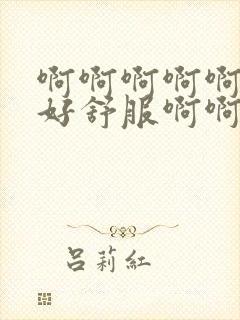 啊啊啊啊啊
好舒服啊啊
吕莉紅